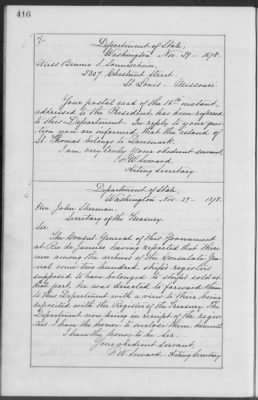 416
Department of State,
Washington Nov. 29 - 1878.
Miss Bennie S. Sonneschein,
2307 Chestnut Street
St Louis - Missouri
Your postal card of the 16th instant,
addressed to the President, has been referred
to this Department. In reply to your ques
tion you are informed, that the island of
St Thomas belongs to Denmark.
I am, very truly, your obedient servant,
F. W. Seward.
Acting Secretary.
Department of State,
Washington Nov. 29 - 1878.
Hon. John Sherman,
Secretary of the Treasury.
Sir:
The Consul General of this Government
at Rio de Janeiro having reported that there
were among the archives of the Consulate Ge
neral some two hundred ships registers
supposed to have belonged to ships sold at
that port, he was directed to forward them
to this Department with a view to their being
deposited with the Register of the Treasury. The
Department now being in receipt of the regis
ters I have the honor to enclose them herewith
I have the honor to be Sir
Your obedient servant,
F. W. Seward - Acting Secretary